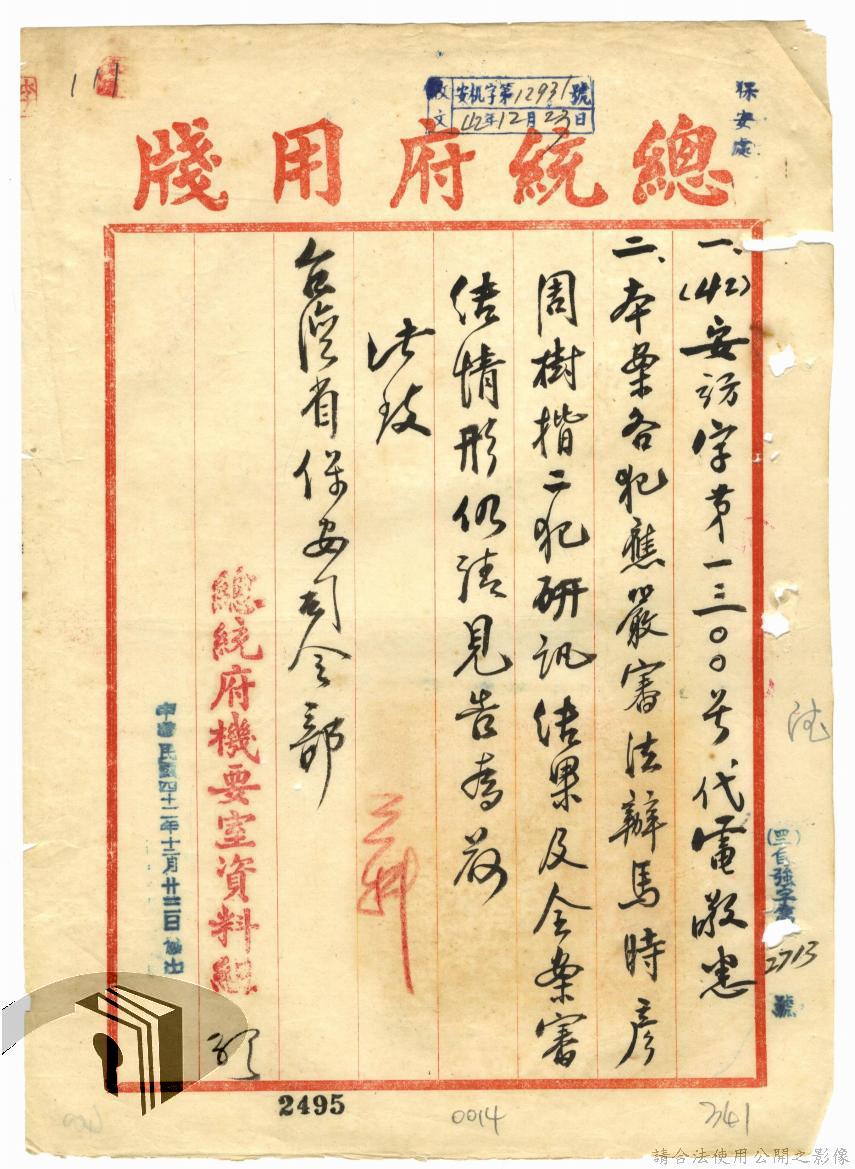 保安處
收文 安机字第12931號
42年12月23日
總統府用牋
一、(42)安訪字第一三〇〇号代電敬悉
二、本案各犯應嚴審法辦馬時彦
周樹揩二犯研訊結果及全案審
结情形仍請見告為荷
此致
台灣省保安司令部
三科
總統府機要室資料組
中華民國四十二年十二月廿二日發出
(四二)自強字第
2713
號
2495
0014
341
請合法使用公開之影像